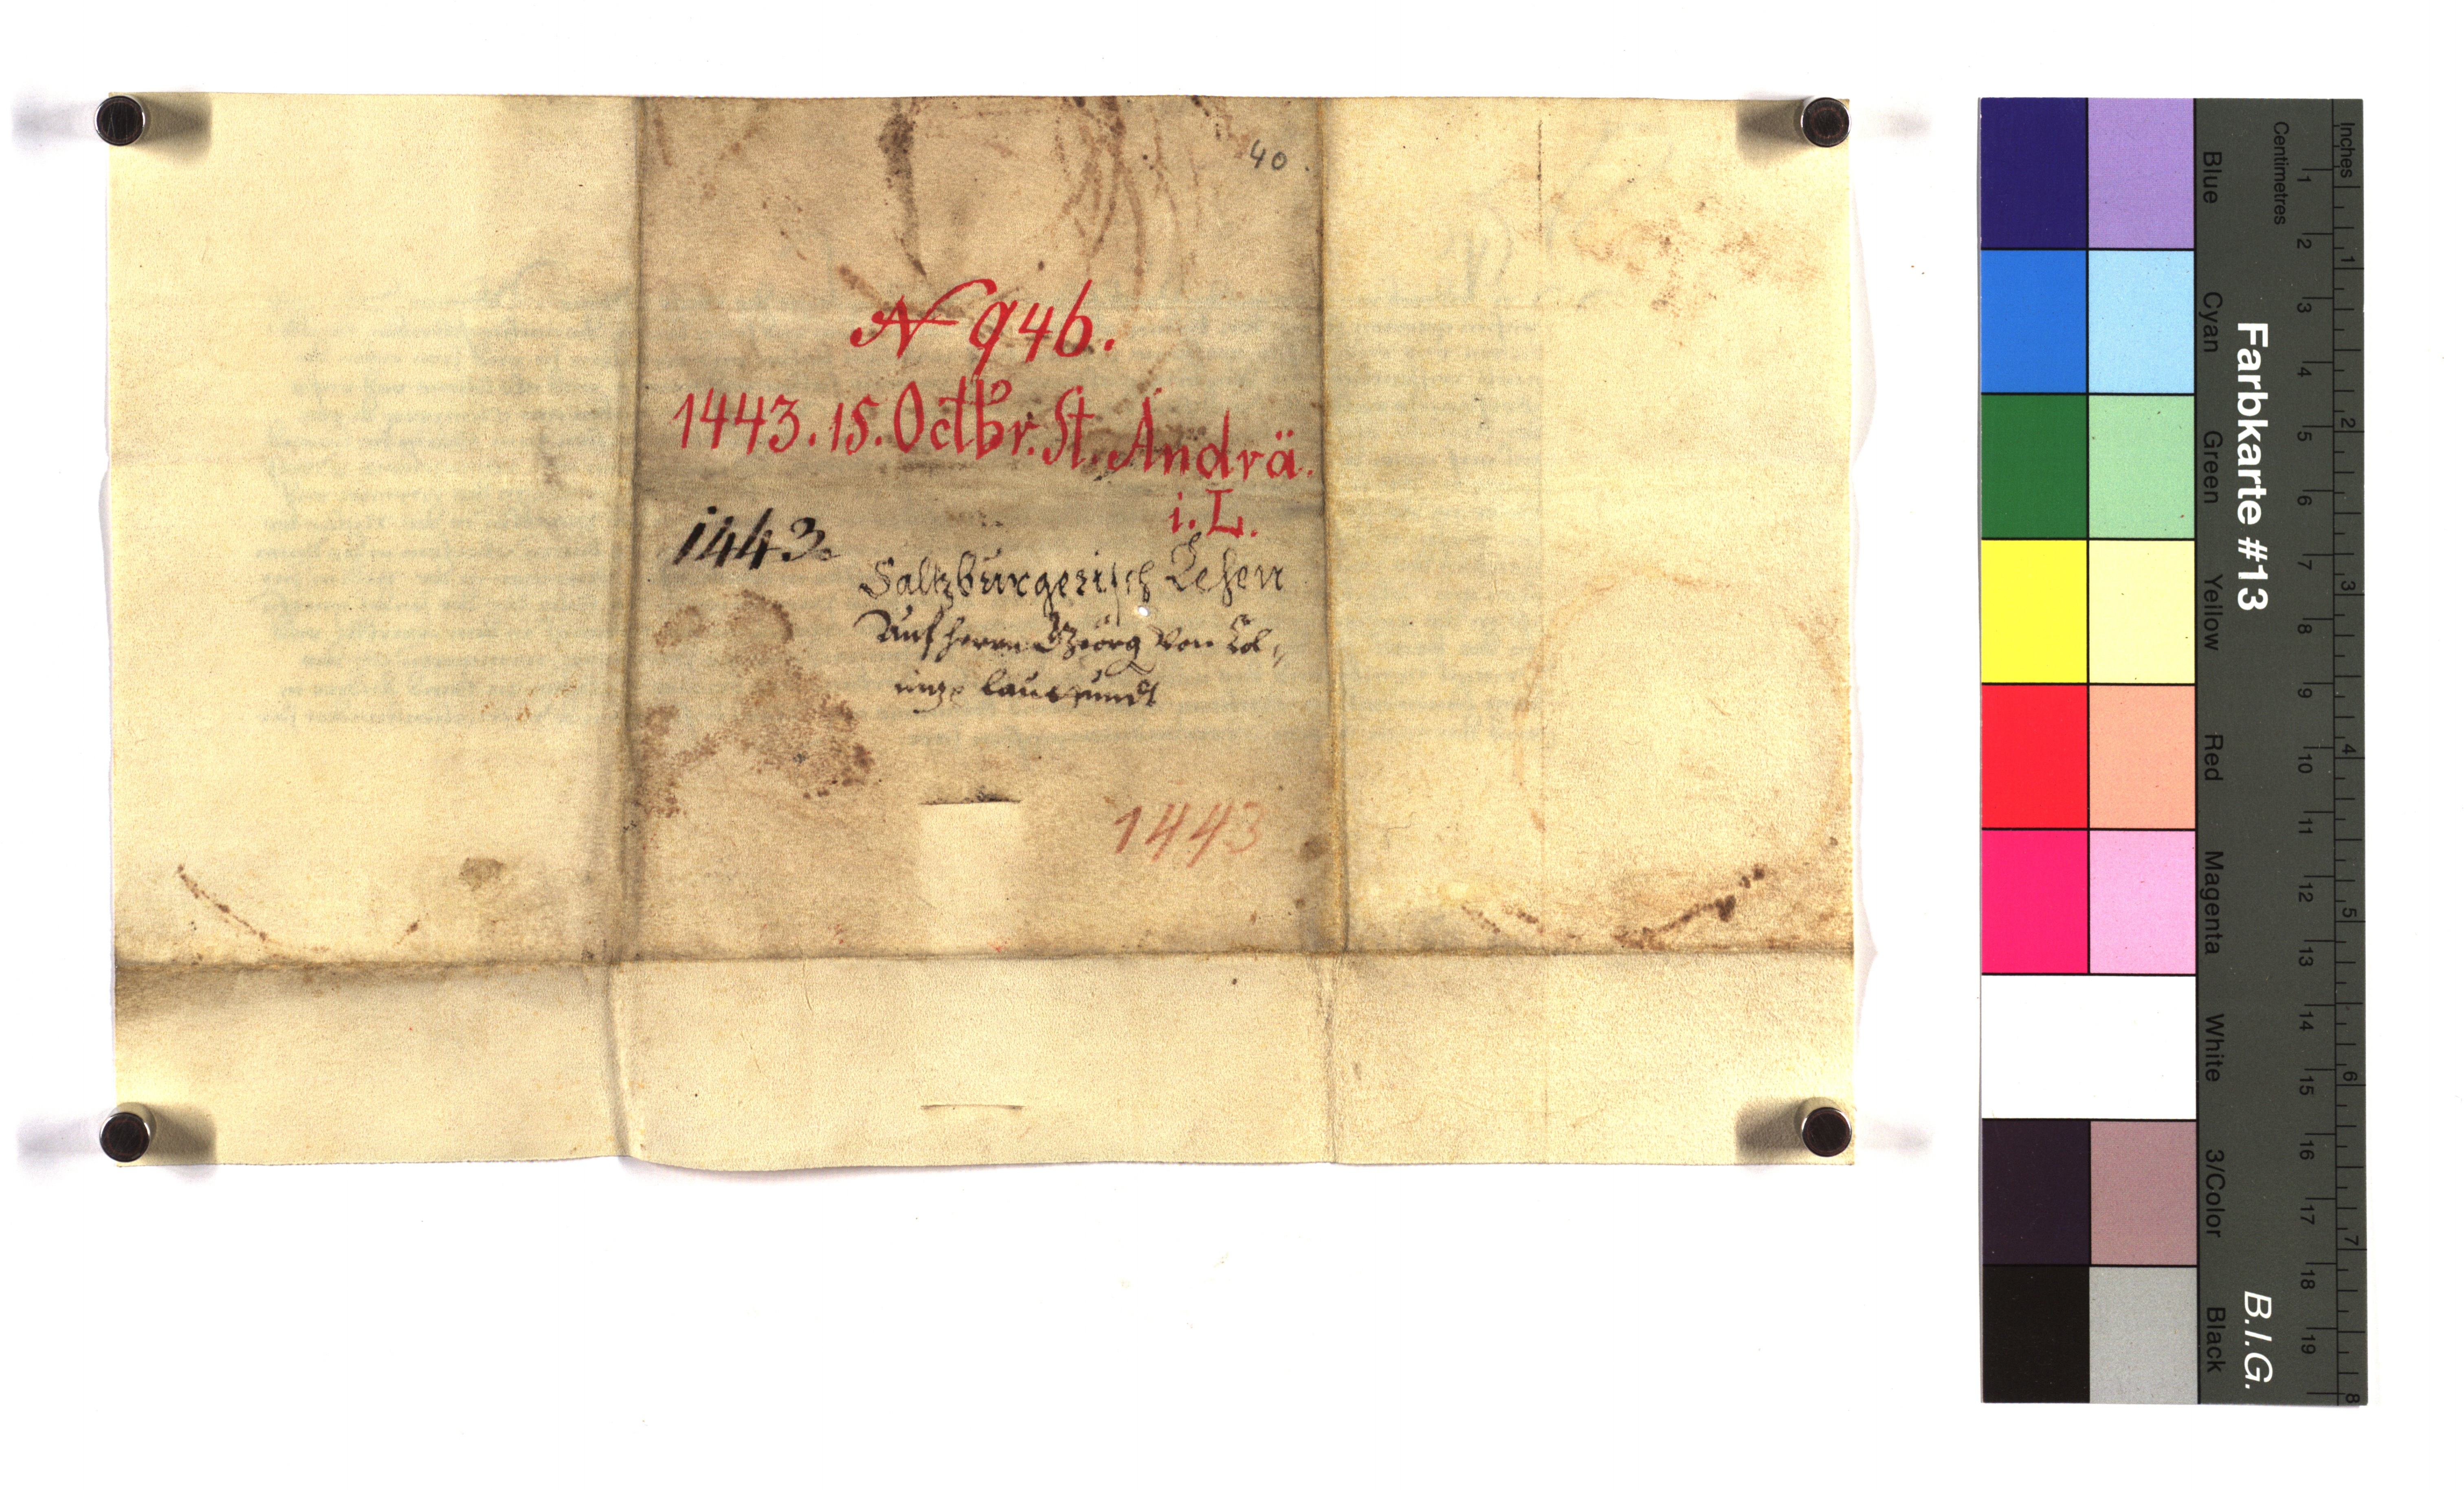 40.
N 946.
1443. 15. Octbr. St. Andrä.
i. L.
1443.
Saltzburgerisch Lehen
Auf herrn Georg von Col-
nitz lauttundt
1443
Farbkarte #13
B.I.G.
Inches
Centimetres
Blue
Cyan
Green
Yellow
Red
Magenta
White
3/Color
Black
1 2 3 4 5 6 7 8 9 10 11 12 13 14 15 16 17 18 19
1 2 3 4 5 6 7 8